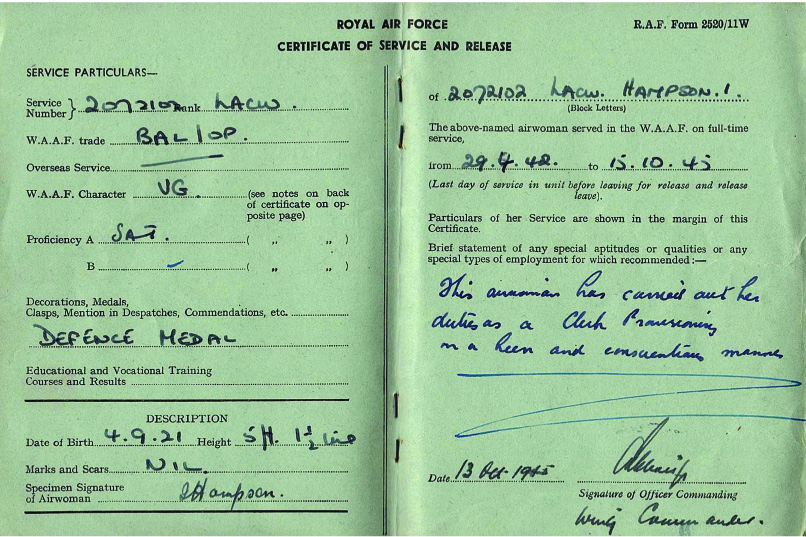 ROYAL AIR FORCE
R.A.F. Form 2520/11W
CERTIFICATE OF SERVICE AND RELEASE
SERVICE PARTICULARS—
Service Number } 2072102 Rank LACW.
W.A.A.F. trade BAL/OP.
Overseas Service
W.A.A.F. Character VG. (see notes on back
of certificate on op-
posite page)
Proficiency A SAT. ( ,, ,, )
B ( ,, ,, )
Decorations, Medals,
Clasps, Mention in Despatches, Commendations, etc.
DEFENCE MEDAL
Educational and Vocational Training
Courses and Results
DESCRIPTION
Date of Birth 4.9.21 Height 5ft. 1½ ins
Marks and Scars NIL.
Specimen Signature
of Airwoman IHampson.
of 2072102 LACW. HAMPSON. I.
(Block Letters)
The above-named airwoman served in the W.A.A.F. on full-time
service,
from 29.4.42. to 15.10.45
(Last day of service in unit before leaving for release and release
leave).
Particulars of her Service are shown in the margin of this
Certificate.
Brief statement of any special aptitudes or qualities or any
special types of employment for which recommended:—
This airwoman has carried out her
duties as a Clerk Provisioning
in a keen and conscientious manner
Date 13 Oct 1945
Signature of Officer Commanding
Wing Commander.